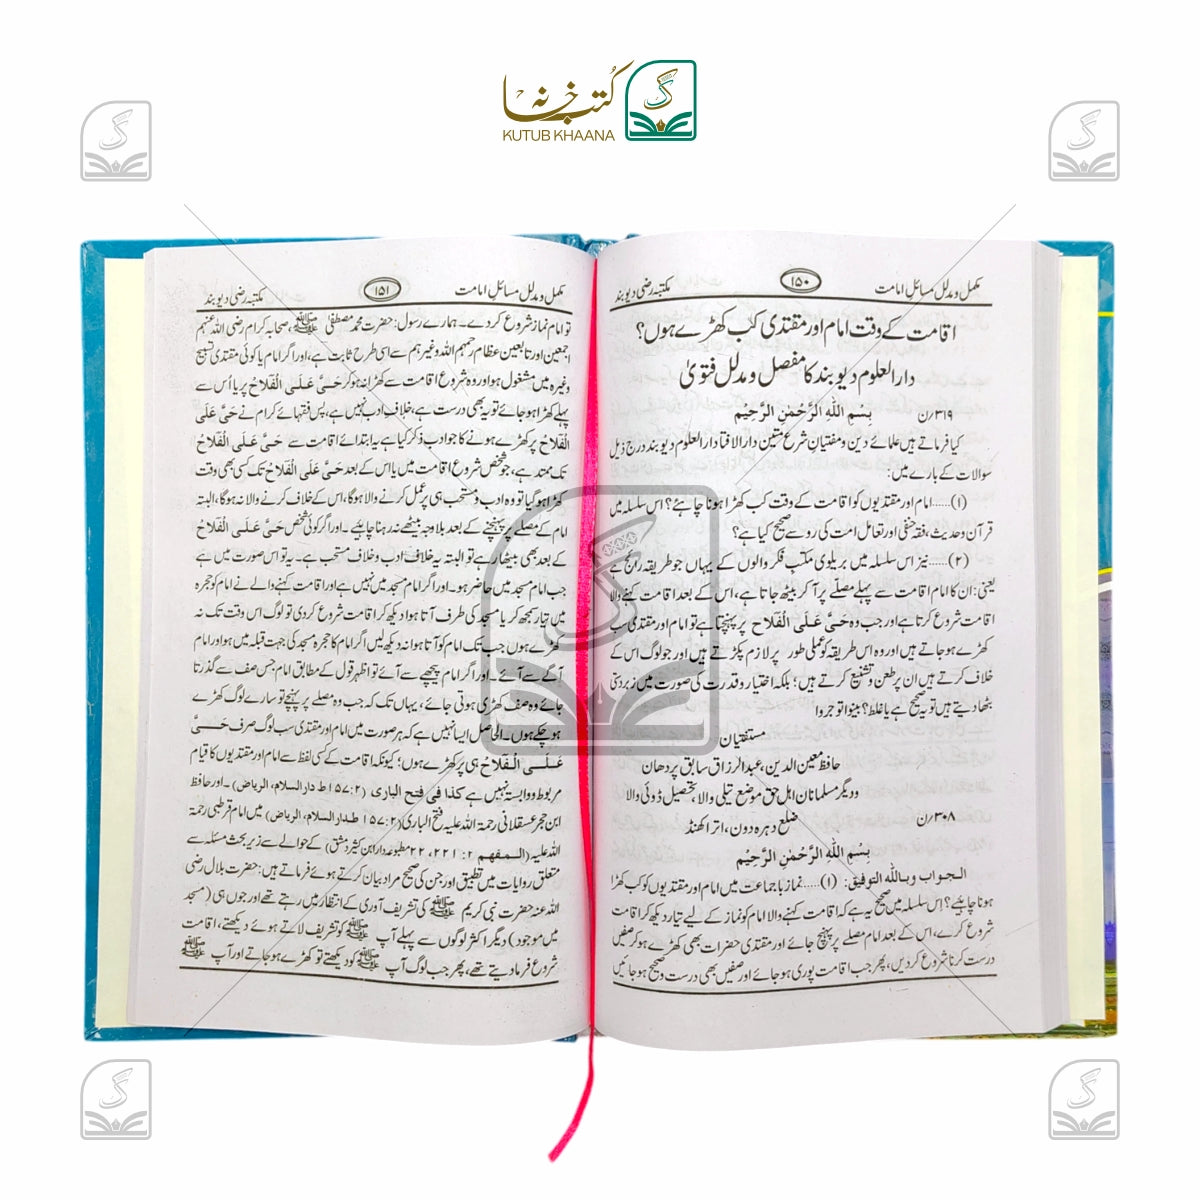 کتب خانہ
KUTUB KHAANA
مکمل و مدلل مسائل امامت
۱۵۰
مکتبہ رضی دیوبند
اقامت کے وقت امام اور مقتدی کب کھڑے ہوں؟
دارالعلوم دیوبند کا مفصل و مدلل فتویٰ
۳۱۹/ن
بِسْمِ اللّٰهِ الرَّحْمٰنِ الرَّحِيْمِ
کیا فرماتے ہیں علمائے دین و مفتیان شرع متین دارالافتا دارالعلوم دیوبند درج ذیل
سوالات کے بارے میں:
(۱)......امام اور مقتدیوں کو اقامت کے وقت کب کھڑا ہونا چاہئے؟ اس سلسلہ میں
قرآن و حدیث، فقہ حنفی اور تعامل امت کی رو سے صحیح کیا ہے؟
(۲)......نیز اس سلسلہ میں بریلوی مکتب فکر والوں کے یہاں جو طریقہ رائج ہے
یعنی: ان کا امام اقامت سے پہلے مصلّے پر آ کر بیٹھ جاتا ہے، اس کے بعد اقامت کہنے والا
اقامت شروع کرتا ہے اور جب وہ حَيَّ عَلَى الْفَلَاح پر پہنچتا ہے تو امام اور مقتدی سب
کھڑے ہو جاتے ہیں اور وہ اس طریقہ کو عملی طور پر لازم پکڑتے ہیں اور جو لوگ اس کے
خلاف کرتے ہیں ان پر طعن و تشنیع کرتے ہیں؛ بلکہ اختیار و قدرت کی صورت میں زبردستی
بٹھا دیتے ہیں تو یہ صحیح ہے یا غلط؟ بینوا توجروا
مستفتیان
حافظ معین الدین، عبدالرزاق سابق پردھان
و دیگر مسلمانان اہل حق موضع تیلی والا، تحصیل ڈوئی والا
ضلع دہرہ دون، اتراکھنڈ
۳۰۸/ن
بِسْمِ اللّٰهِ الرَّحْمٰنِ الرَّحِيْمِ
الجواب وباللّٰه التوفيق: (۱)......نماز باجماعت میں امام اور مقتدیوں کو کب کھڑا
ہونا چاہئے؟ اس سلسلہ میں صحیح یہ ہے کہ اقامت کہنے والا امام کو نماز کے لیے تیار دیکھ کر اقامت
شروع کرے، اس کے بعد امام مصلے پر پہنچ جائے اور مقتدی حضرات بھی کھڑے ہو کر صفیں
درست کرنا شروع کر دیں، پھر جب اقامت پوری ہو جائے اور صفیں بھی درست و صحیح ہو جائیں
مکمل و مدلل مسائل امامت
۱۵۱
مکتبہ رضی دیوبند
تو امام نماز شروع کر دے۔ ہمارے رسول: حضرت محمد مصطفیٰ ﷺ، صحابہ کرام رضی اللہ عنہم
اجمعین اور تابعین عظام رحمہم اللہ وغیرہم سے اسی طرح ثابت ہے، اور اگر امام یا کوئی مقتدی تسبیح
وغیرہ میں مشغول ہو اور وہ شروع اقامت سے کھڑا نہ ہو کر حَيَّ عَلَى الْفَلَاح پر یا اُس سے
پہلے کھڑا ہو جائے تو یہ بھی درست ہے، خلاف ادب نہیں ہے، پس فقہائے کرام نے حَيَّ عَلَى
الْفَلَاح پر کھڑے ہونے کا جو ادب ذکر کیا ہے یہ ابتدائے اقامت سے حَيَّ عَلَى الْفَلَاح
تک ممتد ہے، جو شخص شروع اقامت میں یا اس کے بعد حَيَّ عَلَى الْفَلَاح تک کسی بھی وقت
کھڑا ہو گیا تو وہ ادب و مستحب ہی پر عمل کرنے والا ہوگا، اس کے خلاف کرنے والا نہ ہوگا، البتہ
امام کے مصلے پر پہنچنے کے بعد بلا وجہ بیٹھے نہ رہنا چاہیے۔ اور اگر کوئی شخص حَيَّ عَلَى الْفَلَاح
کے بعد بھی بیٹھا رہے تو البتہ یہ خلاف ادب و خلاف مستحب ہے۔ یہ تو اس صورت میں ہے
جب امام مسجد میں حاضر ہو۔ اور اگر امام مسجد میں نہیں ہے اور اقامت کہنے والے نے امام کو حجرہ
میں تیار سمجھ کر یا مسجد کی طرف آتا ہوا دیکھ کر اقامت شروع کر دی تو لوگ اس وقت تک نہ
کھڑے ہوں جب تک امام کو آتا ہوا نہ دیکھ لیں اگر امام کا حجرہ مسجد کی جہت قبلہ میں ہو اور امام
آگے سے آئے۔ اور اگر امام پیچھے سے آئے تو اظہر قول کے مطابق امام جس صف سے گذرتا
جائے وہ صف کھڑی ہوتی جائے، یہاں تک کہ جب وہ مصلے پر پہنچے تو سارے لوگ کھڑے
ہو چکے ہوں۔ الحاصل ایسا نہیں ہے کہ ہر صورت میں امام اور مقتدی سب لوگ صرف حَيَّ
عَلَى الْفَلَاح ہی پر کھڑے ہوں؛ کیونکہ اقامت کے کسی لفظ سے امام اور مقتدیوں کا قیام
مربوط و وابستہ نہیں ہے کذا في فتح الباري (۲:۱۵۷ ط دار السلام، الرياض)۔ اور حافظ
ابن حجر عسقلانی رحمۃ اللہ علیہ فتح الباری (۲:۱۵۷ ط دار السلام، الرياض) میں امام قرطبی رحمۃ
اللہ علیہ (المفهم ۲: ۲۲۱، ۲۲ مطبوعہ دار ابن کثیر دمشق) کے حوالے سے زیر بحث مسئلہ سے
متعلق روایات میں تطبیق اور جن کی صحیح مراد بیان کرتے ہوئے فرماتے ہیں: حضرت بلال رضی
اللہ عنہ حضرت نبی کریم ﷺ کی تشریف آوری کے انتظار میں رہتے تھے اور جوں ہی (مسجد
میں موجود) دیگر اکثر لوگوں سے پہلے آپ ﷺ کو تشریف لاتے ہوئے دیکھتے، اقامت
شروع فرما دیتے تھے، پھر جب لوگ آپ ﷺ کو دیکھتے تو کھڑے ہو جاتے اور آپ ﷺ